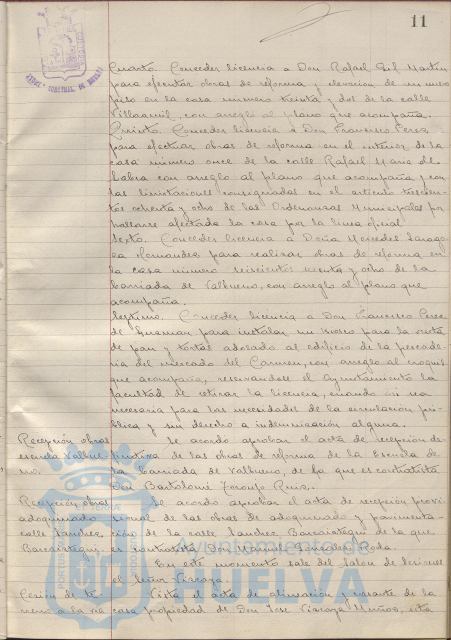 11
Cuarto. Conceder licencia a Don Rafael Gil Martin
para efectuar obras de reforma y elevacion de un nuevo
piso en la casa numero treinta y dos de la calle
Villaamil, con arreglo al plano que acompaña.
Quinto. Conceder licencia a Don Francisco Perea
para efectuar obras de reforma en el interior de la
casa numero once de la calle Rafael Maria de
Labra con arreglo al plano que acompaña y con
las limitaciones consignadas en el articulo trescien-
tos ochenta y ocho de las Ordenanzas Municipales por
hallarse afectada la casa por la linea oficial
Sexto. Conceder licencia a Doña Mercedes
Hernandez para realizar obras de reforma en
la casa numero seiscientos y ocho de la
barriada de Valbueno, con arreglo al plano que
acompaña.
Septimo. Conceder licencia a Don Francisco Perez
de Guzman para instalar un kiosco para la venta
de pan y tortas adosado al edificio de la pescade-
ria del mercado del Carmen, con arreglo al croquis
que acompaña, reservandose el Ayuntamiento la
facultad de retirar la licencia, cuando sea
necesaria para las necesidades de la circulacion pu-
blica y sin derecho a indemnizacion alguna.
Recepción obras
escuela Valbue
no.
Se acordo aprobar el acta de recepcion de-
finitiva de las obras de reforma de la Escuela de
la barriada de Valbueno, de la que es contratista
Don Bartolomé Toronjo Ruiz.
Recepción obras
adoquinado
calle Sanchez
Barcaiztegui
Se acordo aprobar el acta de recepción provi-
sional de las obras de adoquinado y pavimenta-
ción de la calle Sanchez Barcaiztegui de la que
es contratista Don Manuel Gonzalez Roda.
En este momento sale del Salon de Sesiones
el Señor Vizcaya.
Cesión de te-
rreno a la via
Vista el acta de alineacion y rasante de la
casa propiedad de Don Jose Vizcaya Muñoz, esta
Ayuntamiento de
HUELVA